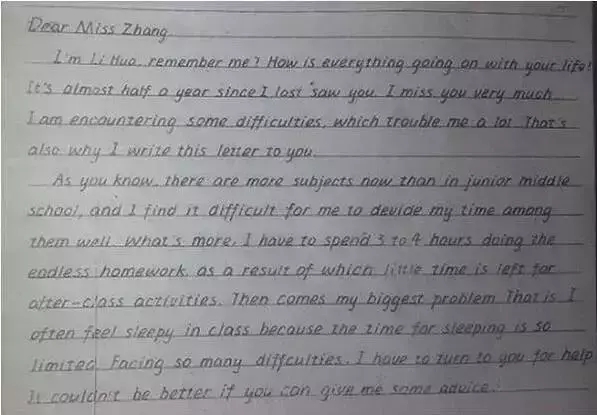 Dear Miss Zhang
I'm Li Hua, remember me? How is everything going on with your life?
It's almost half a year since I last saw you. I miss you very much
I am encountering some difficulties, which trouble me a lot. That's
also why I write this letter to you.
As you know, there are more subjects now than in junior middle
school, and I find it difficult for me to devide my time among
them well. What's more, I have to spend 3 to 4 hours doing the
endless homework, as a result of which little time is left for
after-class activities. Then comes my biggest problem That is I
often feel sleepy in class because the time for sleeping is so
limited. Facing so many diffculties, I have to turn to you for help
It couldn't be better if you can give me some advice.